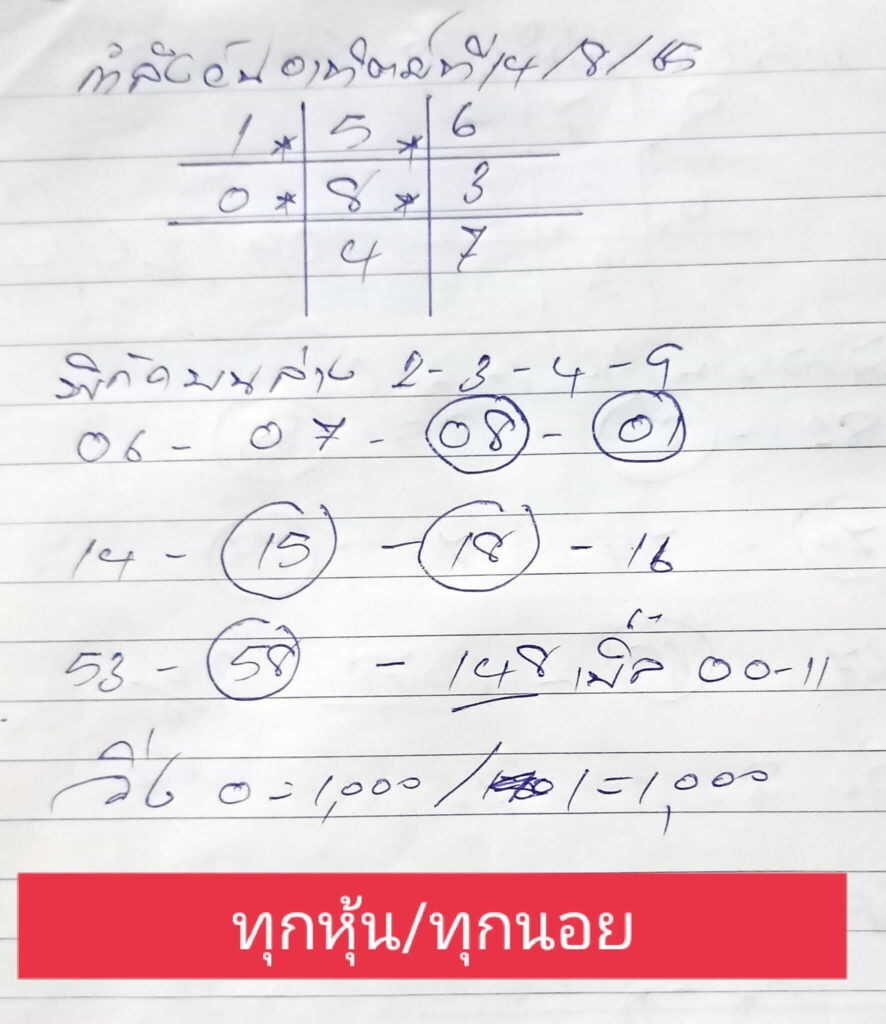 กำลังวันอาทิตย์ที่ 14/8/65
1 * 5 * 6
0 * 8 * 3
4 7
พิกัดบนล่าง 2-3-4-9
06 - 07 - 08 - 01
14 - 15 - 18 - 16
53 - 58 - 148 เบิ้ล 00-11
วิ่ง 0=1,000 / 1=1,000
ทุกหุ้น/ทุกนอย